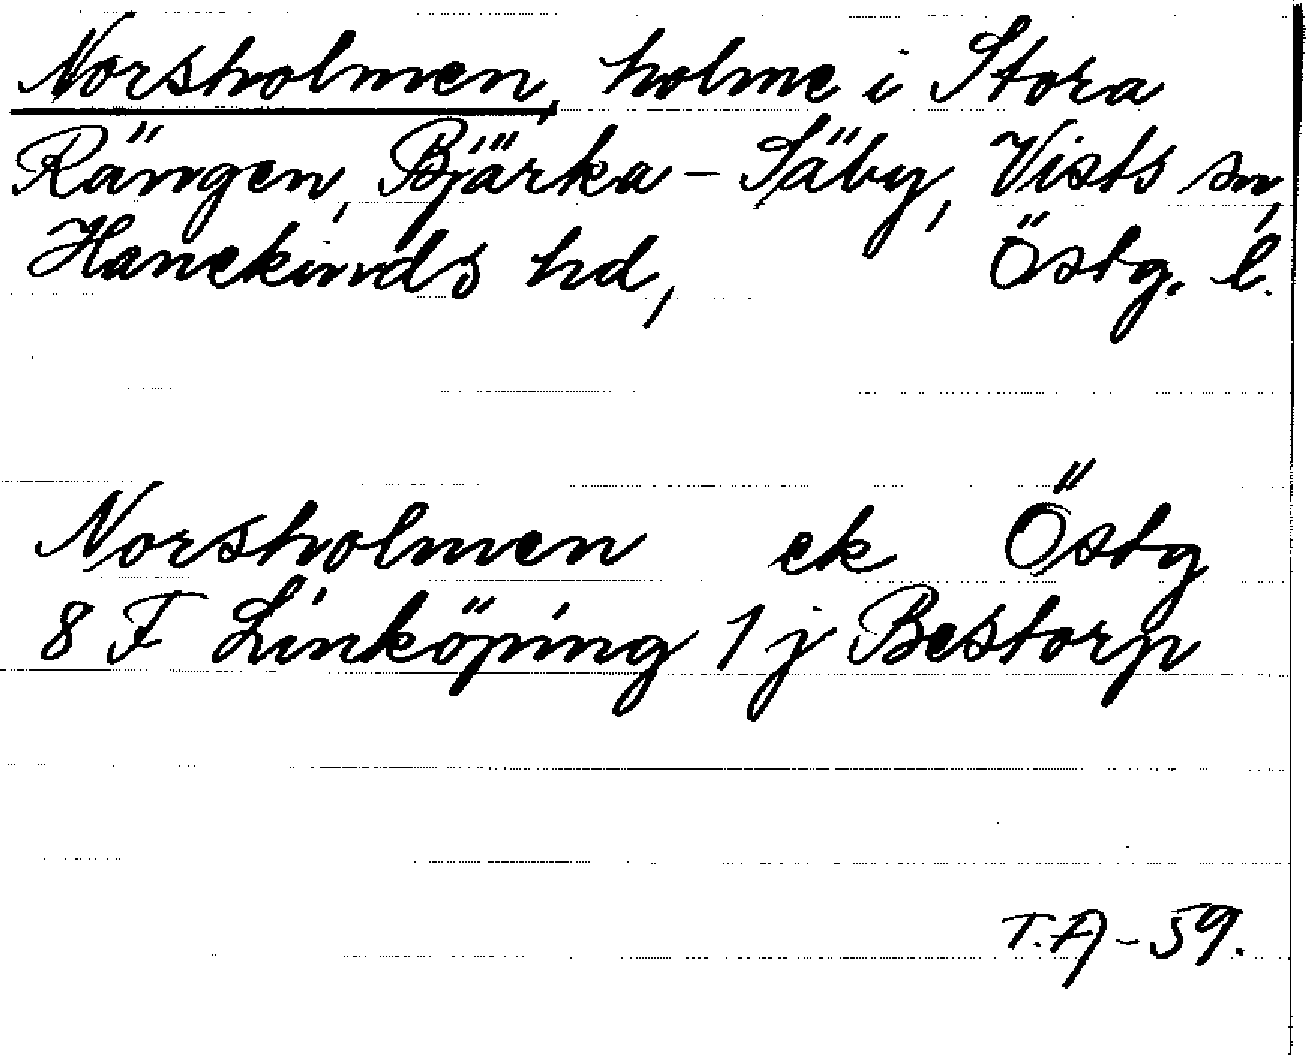 Norsholmen, holme i Stora
Rängen, Bjärka-Säby, Vists sn,
Hanekinds hd, Östg. l.
Norsholmen ek Östg
8 F Linköping 1 j Bestorp
T.A-59.